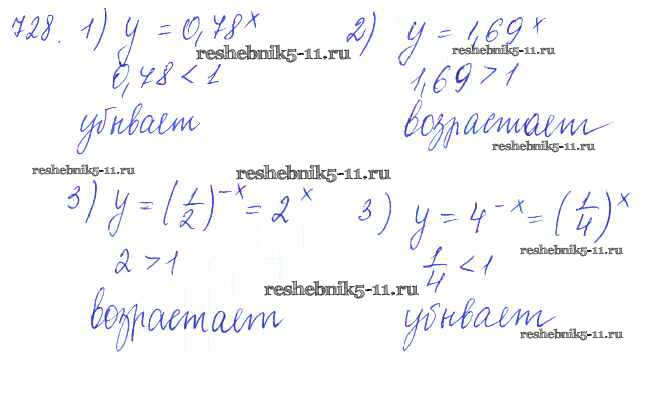 728. 1) y = 0,78^x 2) y = 1,69^x
reshebnik5-11.ru reshebnik5-11.ru
0,78 < 1 1,69 > 1
убывает возрастает
reshebnik5-11.ru reshebnik5-11.ru reshebnik5-11.ru
3) y = (1/2)^-x = 2^x 3) y = 4^-x = (1/4)^x
reshebnik5-11.ru
2 > 1 1/4 < 1
reshebnik5-11.ru
возрастает убывает
reshebnik5-11.ru